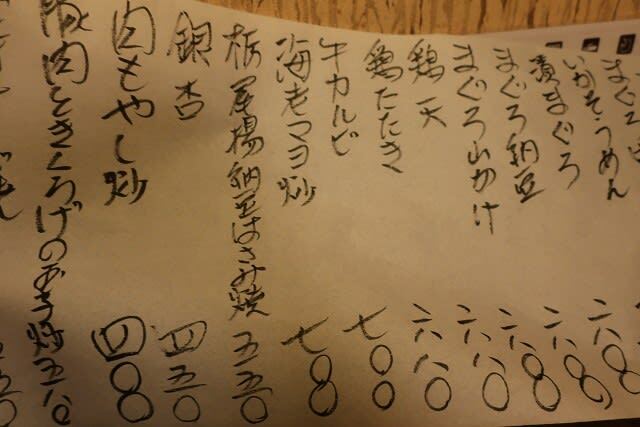 いかそうめん
漬まぐろ
まぐろ納豆
まぐろ山かけ
鶏天
鶏たたき
牛カルビ
海老マヨ炒
栃尾揚納豆はさみ焼
銀杏
肉もやし炒
豚肉ときくらげの玉子炒
六八〇
六八〇
六八〇
六八〇
六八〇
七〇〇
七〇〇
五五〇
四五〇
四〇〇
五八〇